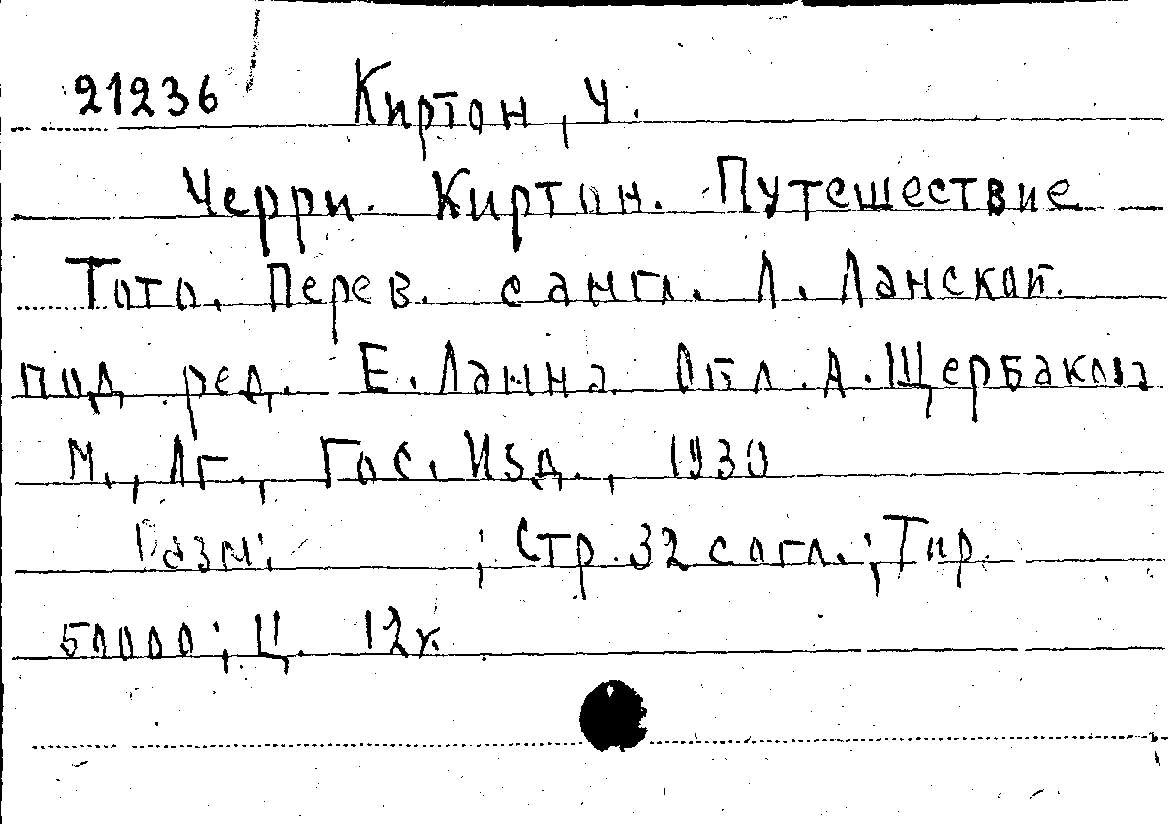 21236 Киртон, Ч.
Черри. Киртон. Путешествие
Тото. Перев. с англ. Л. Ланской.
под ред. Е. Ланна Обл. А. Щербакова
М., Лг., Гос. Изд., 1930
Разм: ; Стр. 32 с огл.; Тир.
50000; Ц. 12к